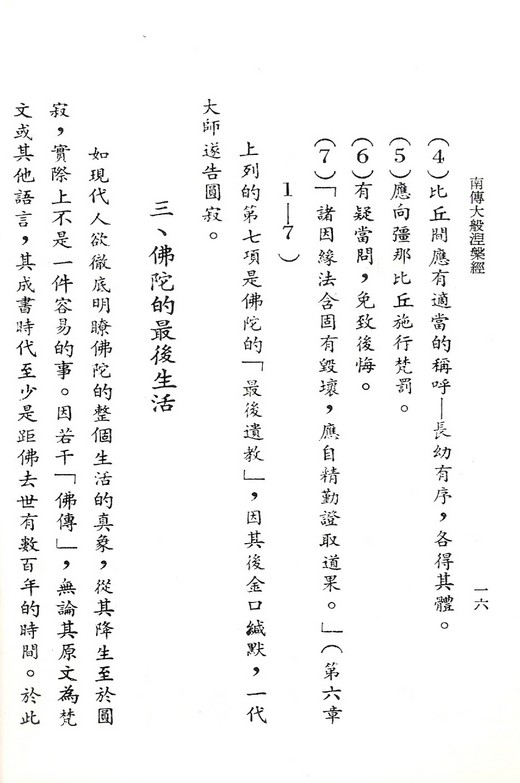 南傳大般涅槃經
一六
(4)比丘間應有適當的稱呼—長幼有序,各得其體。
(5)應向疆那比丘施行梵罰。
(6)有疑當問,免致後悔。
(7)「諸因緣法含固有毀壞,應自精勤證取道果。」(第六章
1—7)
上列的第七項是佛陀的「最後遺教」,因其後金口緘默,一代
大師遂告圓寂。
三、佛陀的最後生活
如現代人欲徹底明瞭佛陀的整個生活的真象,從其降生至於圓
寂,實際上不是一件容易的事。因若干「佛傳」,無論其原文為梵
文或其他語言,其成書時代至少是距佛去世有數百年的時間。於此